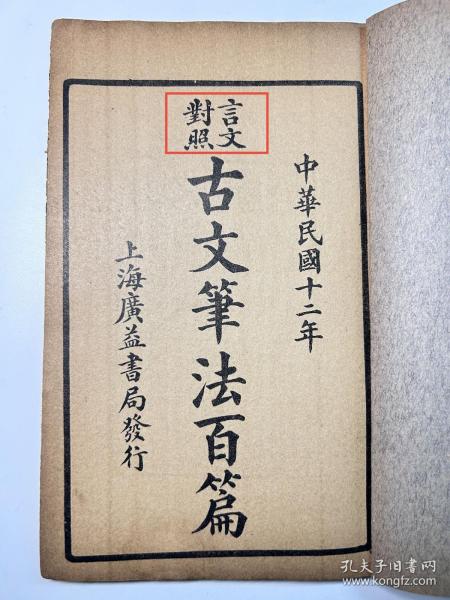 中華民國十二年
言文
對照
古文筆法百篇
上海廣益書局發行
孔夫子旧书网
www.kongfz.com